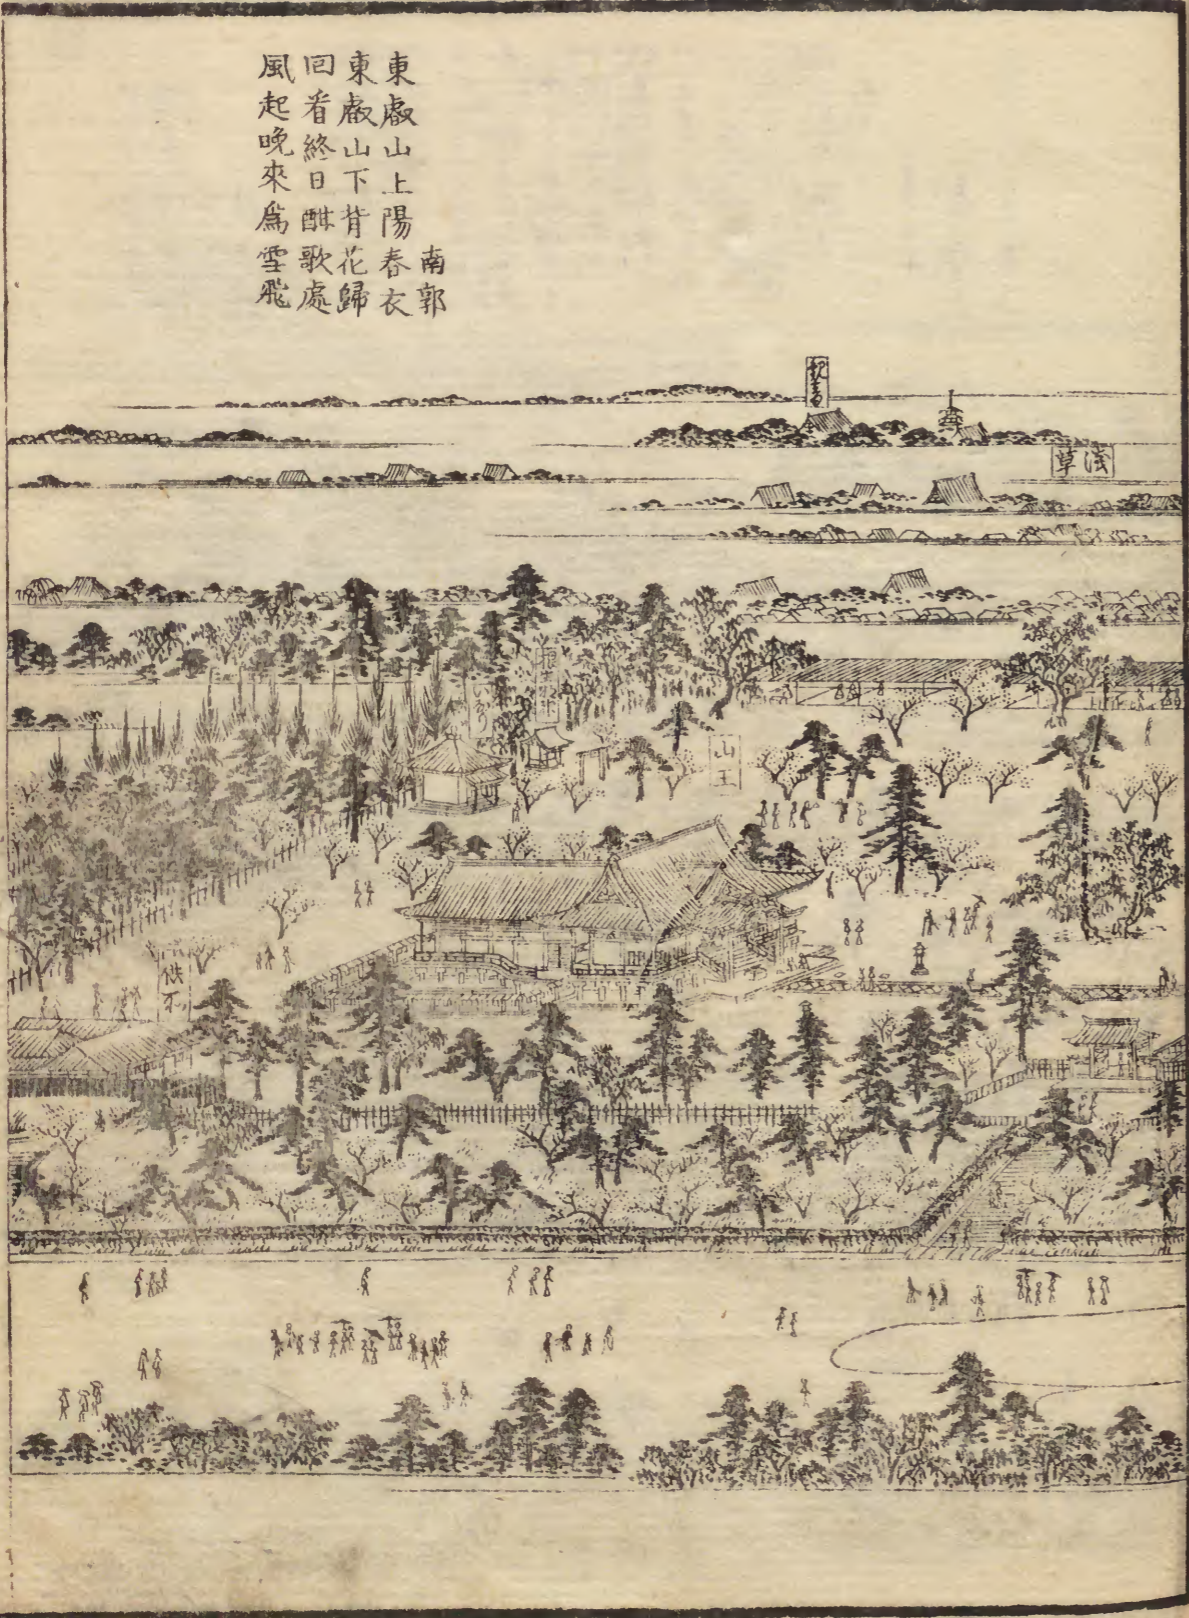 南郭
東叡山上陽春衣
東叡山下背花歸
回看終日酣歌處
風起晩來爲雪飛
観音
淺草
山王
供所